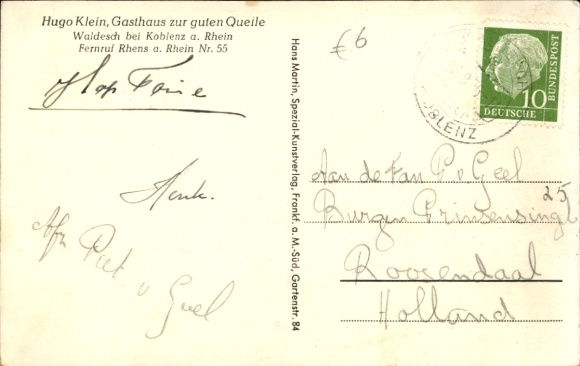 Hugo Klein, Gasthaus zur guten Quelle
Waldesch bei Koblenz a. Rhein
Fernruf Rhens a. Rhein Nr. 55
Henk.
Afz Piet. v Geel
Hans Martin, Spezial-Kunstverlag, Frankf. a. M.-Süd, Gartenstr. 84
£6
OBLENZ
10
DEUTSCHE
BUNDESPOST
Aan de Fam P v Geel
Burgem Prinsensingl 25
Roosendaal
Holland